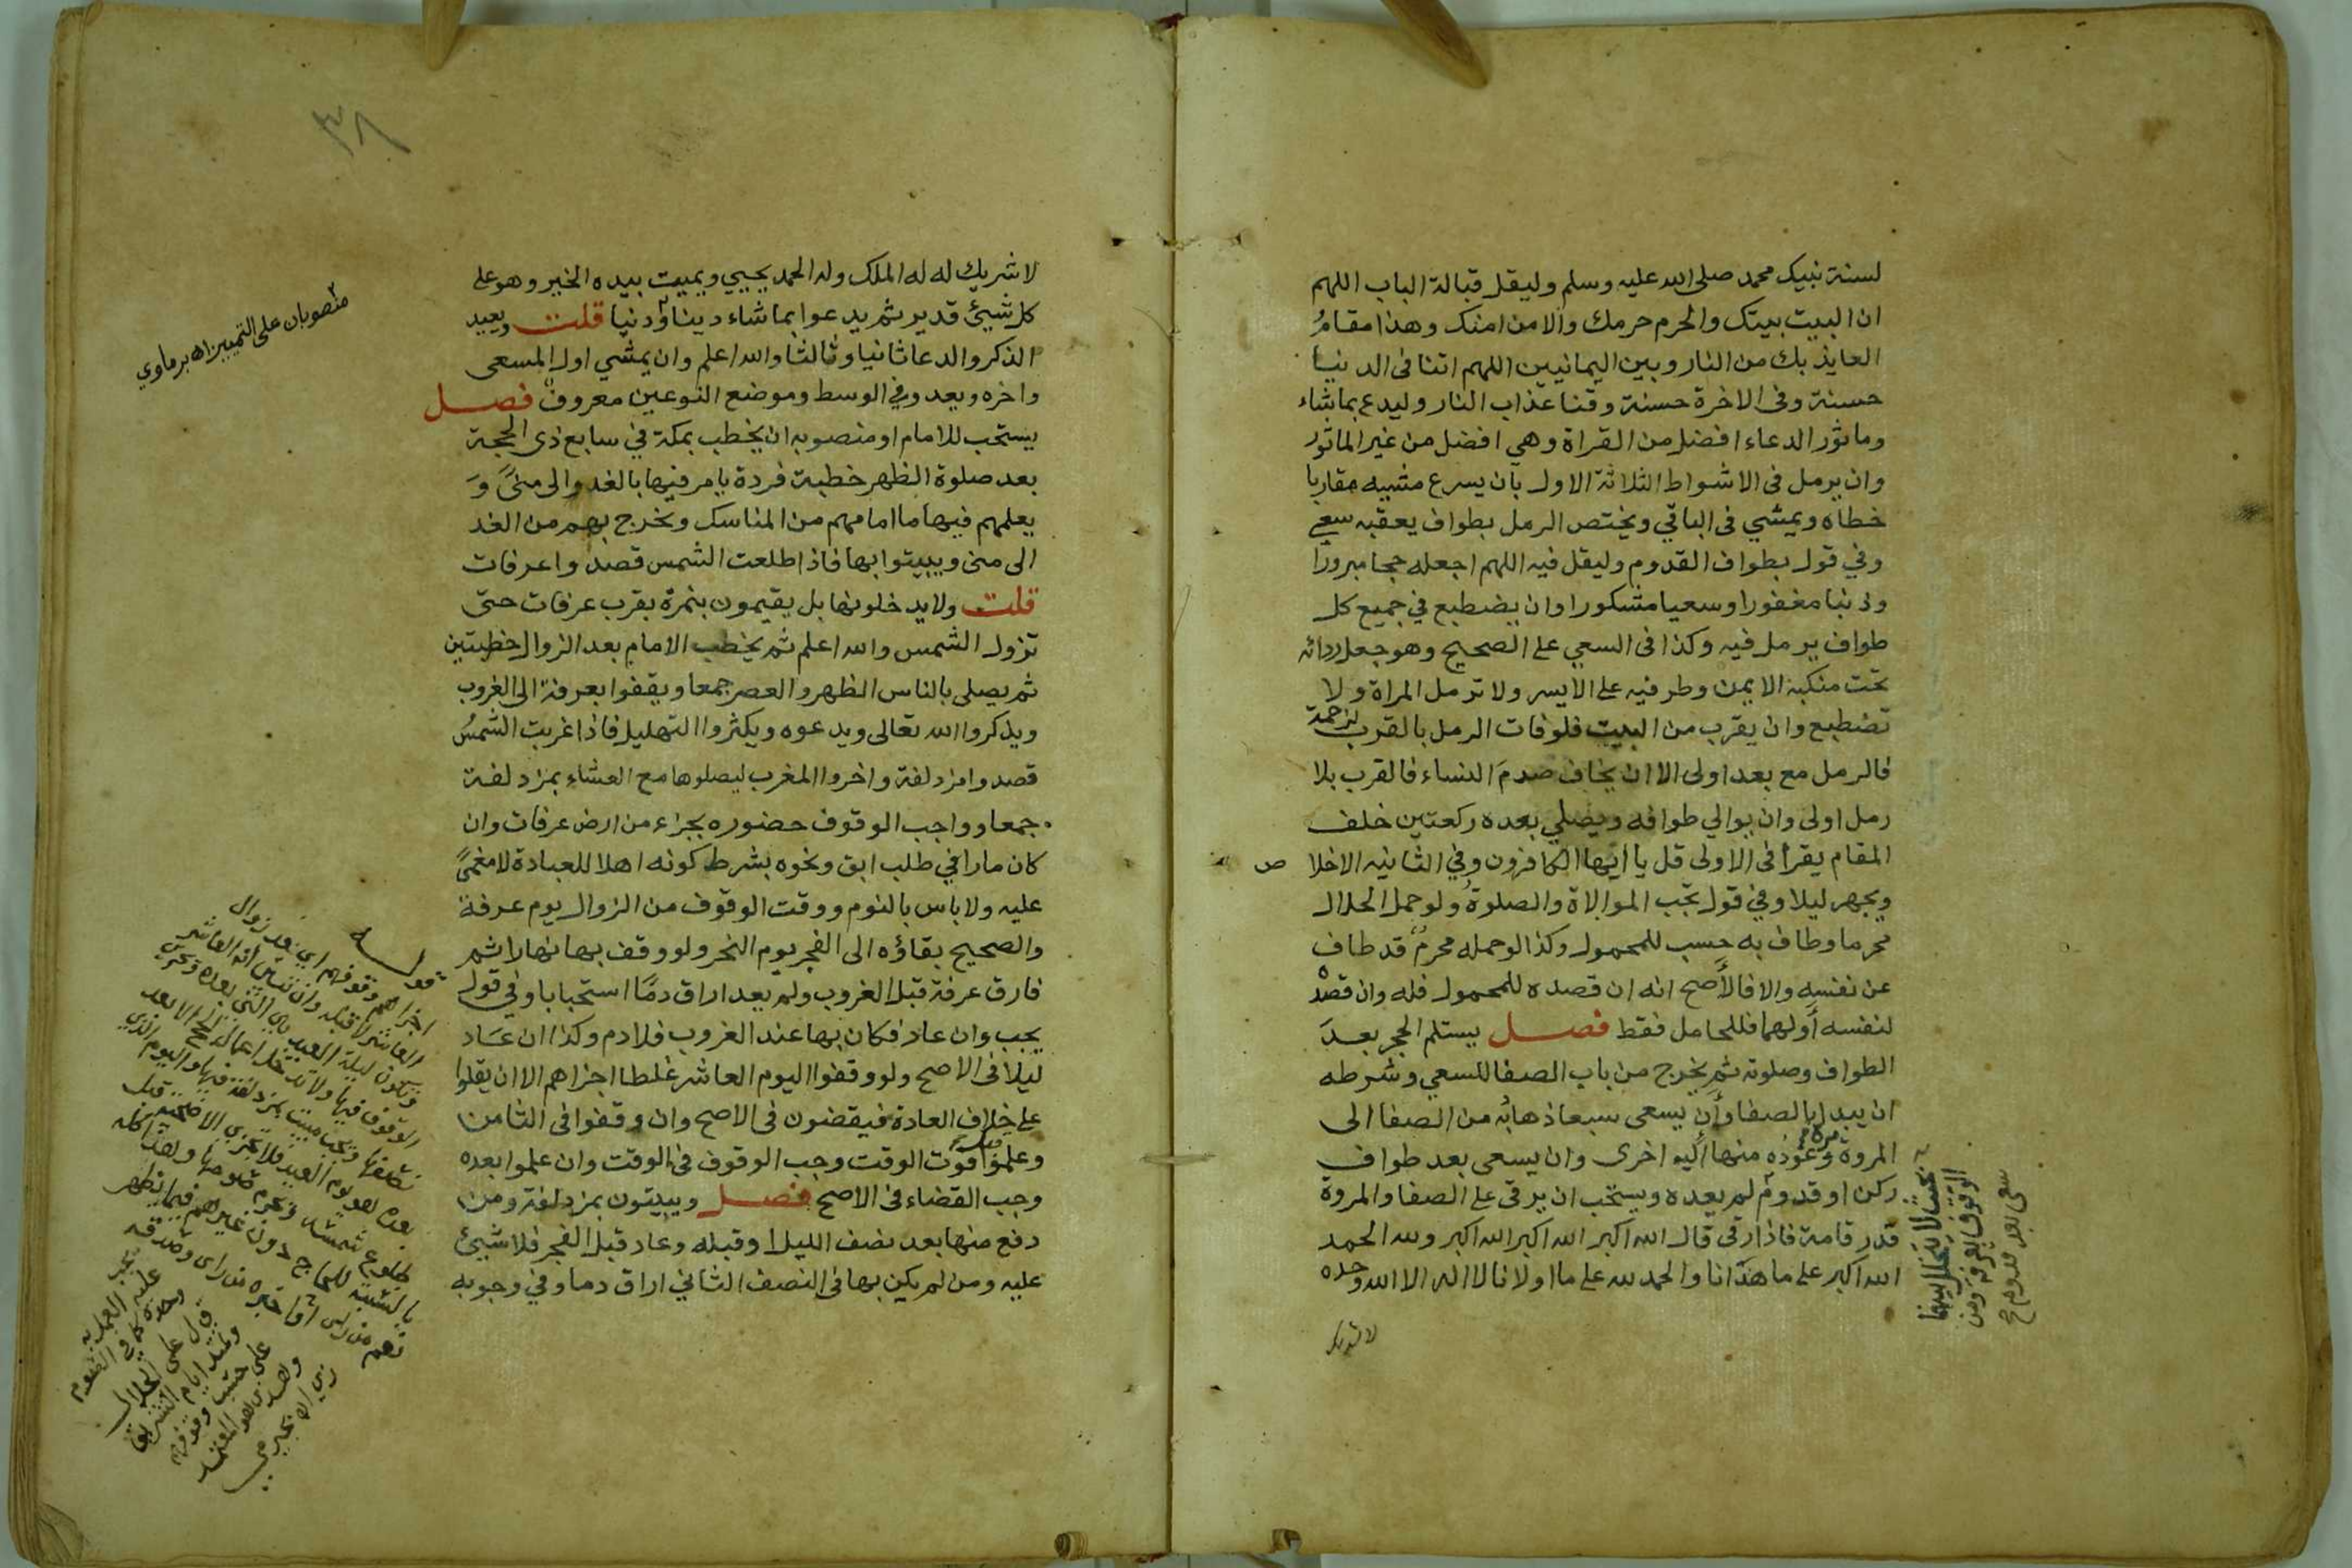 لسنة نبيك محمد صلى الله عليه وسلم وليقل قبالة الباب اللهم
ان البيت بيتك والحرم حرمك والامن امنك وهذا مقامُ
العايذ بك من النار وبين اليمانيين اللهم اتنا فى الدنيا
حسنة وفى الاخرة حسنة وقنا عذاب النار وليدع بما شاء
وماثور الدعاء افضل من القراة وهي افضل من غير الماثور
وان يرمل فى الاشواط الثلاثة الاول بان يسرع مشيه مقاربا
خطاه ويمشي فى الباقي ويختص الرمل بطواف يعقبه سعي
وفي قول بطواف القدوم وليقل فيه اللهم اجعله حجا مبرورا
وذنبا مغفورا وسعيا مشكورا وان يضطبع في جميع كل
طواف يرمل فيه وكذا فى السعي على الصحيح وهو جعل ردائه
تحت منكبه الايمن وطرفيه على الايسر ولا ترمل المراة ولا
تضطبع وان يقرب من البيت فلوفات الرمل بالقرب لزحمة
فالرمل مع بعد اولى الا ان يخاف صدمَ النساء فالقرب بلا
رمل اولى وان يوالي طوافه ويصلي بعده ركعتين خلف
المقام يقرأ فى الاولى قل يا ايها الكافرون وفي الثانيه الاخلا ص
ويجهر ليلا وفي قول تجب الموالاة والصلوةُ ولو حمل الحلال
محرما وطاف به حسب للمحمول وكذا لو حمله محرمٌ قد طاف
عن نفسه والا فالأصح انه ان قصده للمحمول فله وان قصدَ
لنفسه أولهما فللحامل فقط فصل يستلم الحجر بعدَ
الطواف وصلوته ثم يخرج من باب الصفا للسعي وشرطه
ان يبدا بالصفا وأن يسعى سبعا ذهابُه من الصفا الى
المروة مرة وعَودُه منها اليه اخرى وان يسعى بعد طواف
ركن او قدوم لم يعده ويستحب ان يرقى على الصفا والمروة
قدر قامة فاذا رقى قال الله اكبر الله اكبر الله اكبر ولله الحمد
الله اكبر على ما هدانا والحمد لله على ما اولانا لا اله الا الله وحده
لا شريك
بحيث لا يتخلل بينهما
الوقوف بعرفة ومن
سعى بعد قدوم
٣٨
لا شريك له له الملك وله الحمد يحيي ويميت بيده الخير وهو على
كل شيئ قدير ثم يدعوا بما شاء دينا ودنيا قلت ويعيد
الذكر والدعا ثانيا وثالثا والله اعلم وان يمشي اول المسعى
واخره ويعدو في الوسط وموضع النوعين معروفٌ فصل
يستحب للامام او منصوبه ان يخطب بمكة في سابع ذى الحجة
بعد صلوة الظهر خطبة فردة يامر فيها بالغدو الى منىً وَ
يعلمهم فيها ما امامهم من المناسك ويخرج بهم من الغد
الى منى ويبيتوا بها فاذا طلعت الشمس قصدوا عرفات
قلت ولا يدخلونها بل يقيمون بنمرة بقرب عرفات حتى
تزول الشمس والله اعلم ثم يخطب الامام بعد الزوال خطبتين
ثم يصلى بالناس الظهر والعصر جمعا ويقفوا بعرفة الى الغروب
ويذكروا الله تعالى ويدعوه ويكثروا التهليل فاذا غربت الشمسُ
قصدوا مزدلفة واخروا المغرب ليصلوها مع العشاء بمزدلفة
جمعا وواجب الوقوف حضوره بجزاء من ارض عرفات وان
كان مارا في طلب ابق ونحوه بشرط كونه اهلا للعبادة لا مغمىً
عليه ولا باس بالنوم ووقت الوقوف من الزوال يوم عرفة
والصحيح بقاؤه الى الفجر يوم النحر ولو وقف بها نهارا ثم
فارق عرفة قبل الغروب ولم يعد اراق دمًا استحبابا وفي قول
يجب وان عاد فكان بها عند الغروب فلا دم وكذا ان عَاد
ليلا فى الاصح ولو وقفوا اليوم العاشر غلطا اجزاهم الا ان يقلوا
على خلاف العادة فيقضون فى الاصح وان وقفوا فى الثامن
وعلموا قبل فوت الوقت وجب الوقوف فى الوقت وان علموا بعده
وجب القضاء فى الاصح فصل ويبيتون بمزدلفة ومن
دفع منها بعد نصف الليل او قبله وعاد قبل الفجر فلا شيئ
عليه ومن لم يكن بها فى النصف الثاني اراق دما وفي وجوبه
منصوبان على التمييز اه برماوي
قوله
اجزاهم وقوفهم اي بعد زوال
العاشر لا قبله وان تبين انه العاشر
وتكون ليلة العيد هي التي بعده
الوقوف فيها ولا تدخل اعمال الحج الا بعد
نصفها ويجب مبيت بمزدلفة فيها واليوم الذي
بعده هو يوم العيد فلا تجزي الاضحية قبل
طلوع شمسه ويحرم صومها وهذا كله
بالنسبة للحاج دون غيرهم فيما يظهر